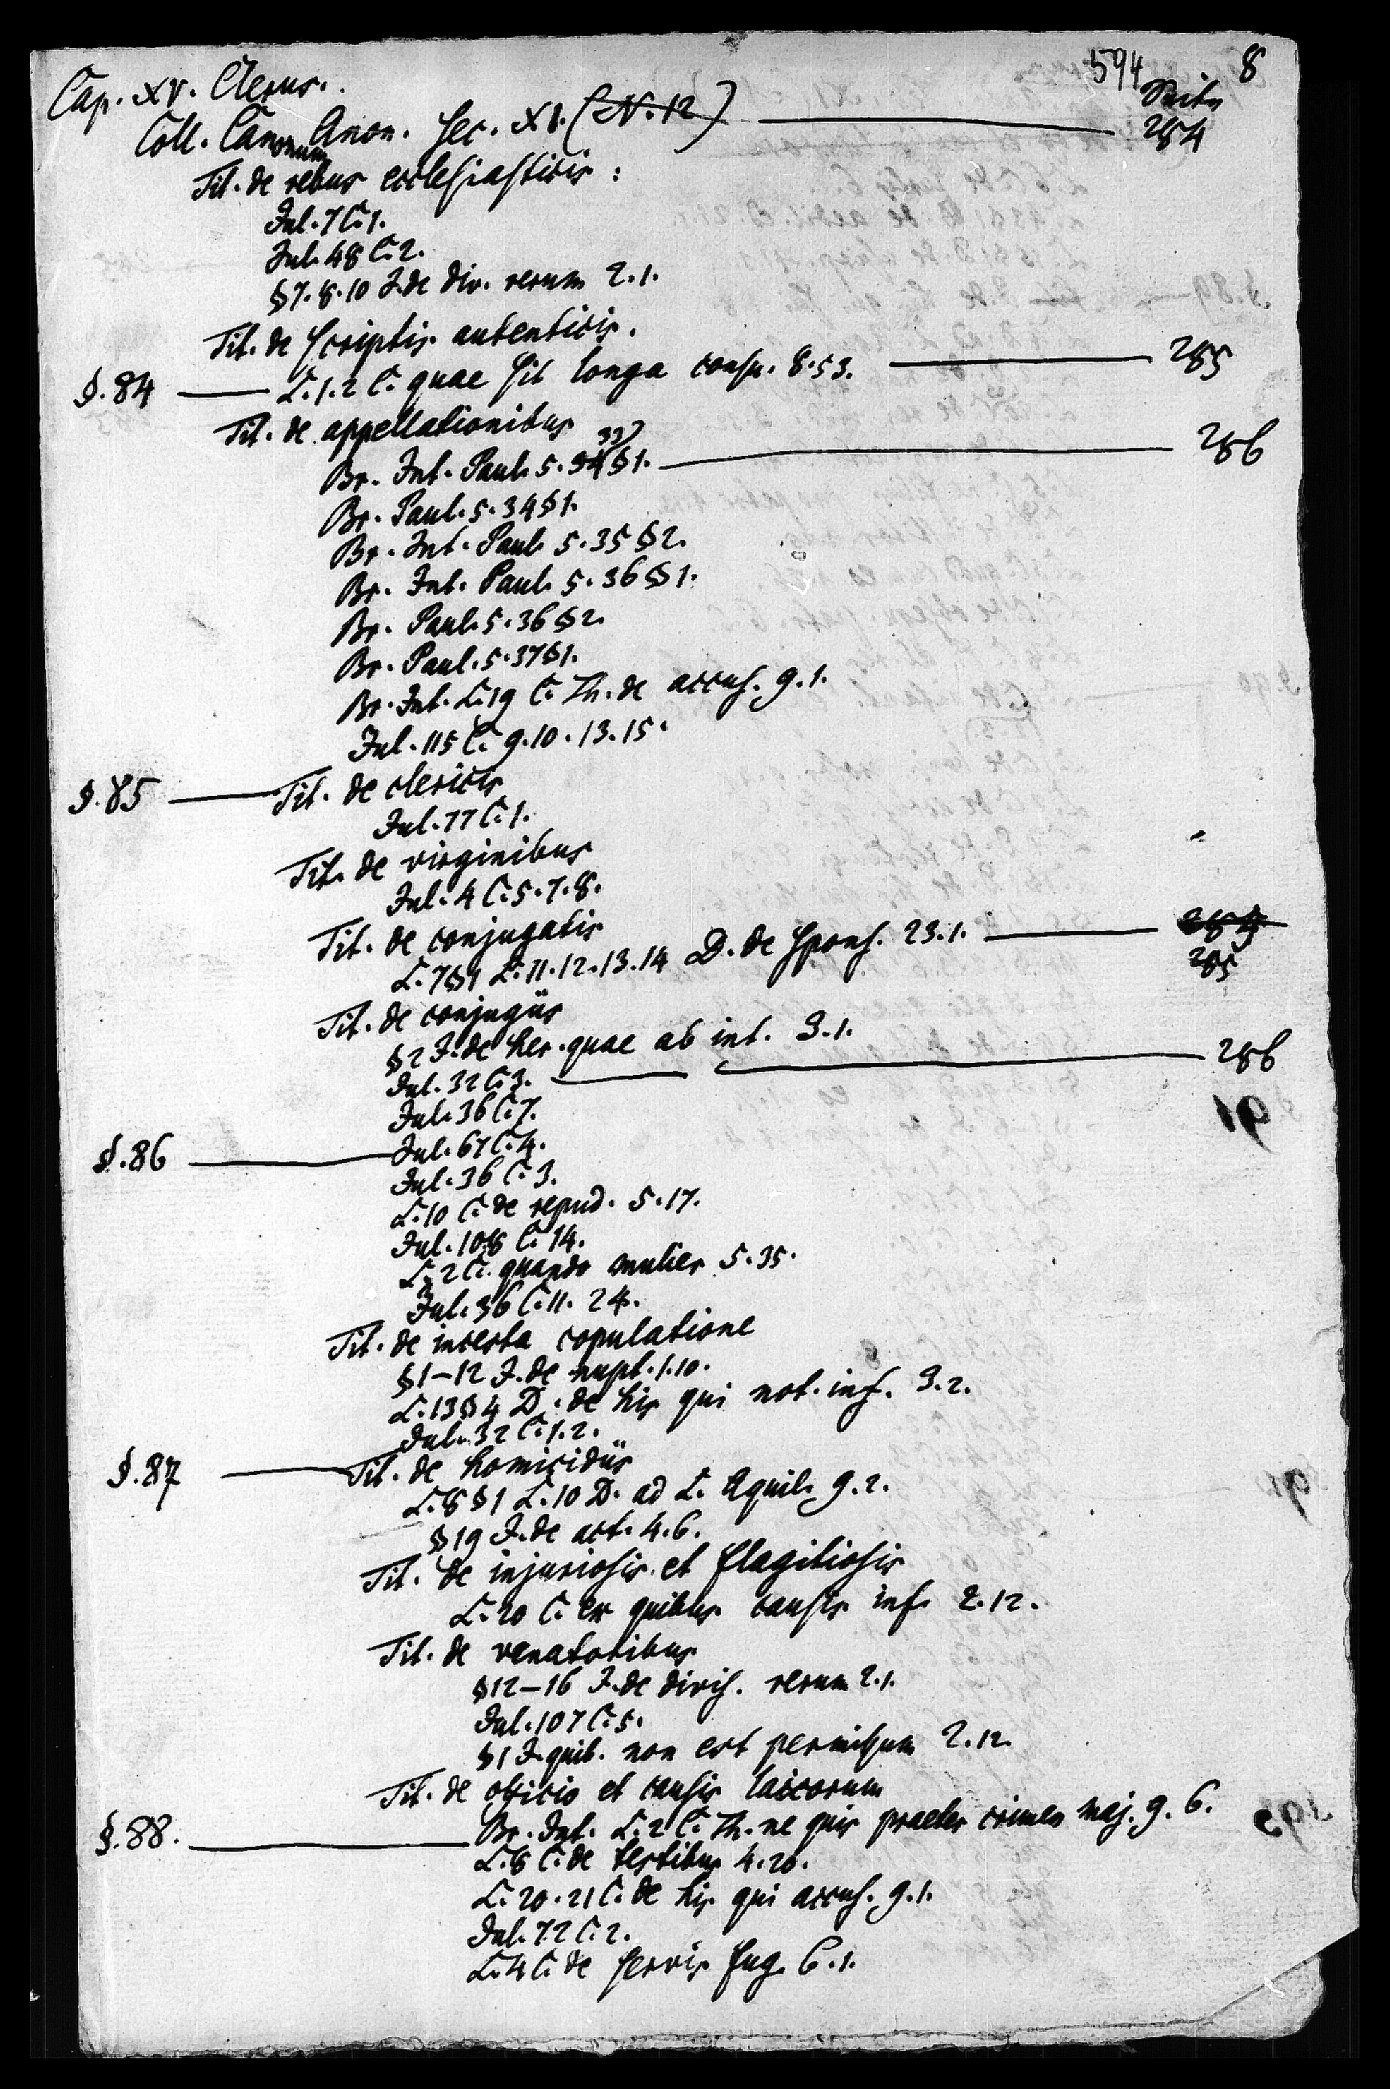 594 8
Cap. XV. Clerus.
Seite
Coll. Canonum Anon. Sec. XI. (N. 12) 284
Tit. de rebus ecclesiasticis :
Jul. 7 C. 1.
Jul. 48 C. 2.
§ 7. 8. 10 J. de div. rerum 2. 1.
Tit. de scriptis autenticis.
§. 84 L. 1. 2 C. quae sit longa consu. 8. 53. 285
Tit. de appellationibus
33
Br. Int. Paul. 5. 34 § 1. 286
Br. Paul. 5. 34 § 1.
Br. Int. Paul. 5. 35 § 2.
Br. Int. Paul. 5. 36 § 1.
Br. Paul. 5. 36 § 2.
Br. Paul. 5. 37 § 1.
Br. Int. L. 19 C. Th. de accus. 9. 1.
Jul. 115 C. 9. 10. 13. 15.
§. 85 Tit. de clericis
Jul. 77 C. 1.
Tit. de virginibus
Jul. 4 C. 5. 7. 8.
Tit. de conjugatis
L. 7 § 1 L. 11. 12. 13. 14 D. de spons. 23. 1. 284
285
Tit. de conjugiis
§ 2 J. de her. quae ab int. 3. 1.
Jul. 32 C. 3. 286
Jul. 36 C. 7.
§. 86 Jul. 67 C. 4.
Jul. 36 C. 3.
L. 10 C. de repud. 5. 17.
Jul. 108 C. 14.
L. 2 C. quando mulier 5. 35.
Jul. 36 C. 11. 24.
Tit. de incesta copulatione
§ 1–12 J. de nupt. 1. 10.
L. 13 § 4 D. de his qui not. inf. 3. 2.
Jul. 32 C. 1. 2.
§. 87 Tit. de homicidiis
L. 8 § 1 L. 10 D. ad L. Aquil. 9. 2.
§ 19 J. de act. 4. 6.
Tit. de injuriosis et flagitiosis
L. 20 C. ex quibus causis inf. 2. 12.
Tit. de venatoribus
§ 12–16 J. de divis. rerum 2. 1.
Jul. 107 C. 5.
§ 1 J. quib. non est permissum 2. 12.
Tit. de officio et causis laicorum
§. 88. Br. Int. L. 2 C. Th. ne quis praeter crimen maj. 9. 6.
L. 8 C. de testibus 4. 20.
L. 20. 21 C. de his qui accus. 9. 1.
Jul. 72 C. 2.
L. 4 C. de servis fug. 6. 1.